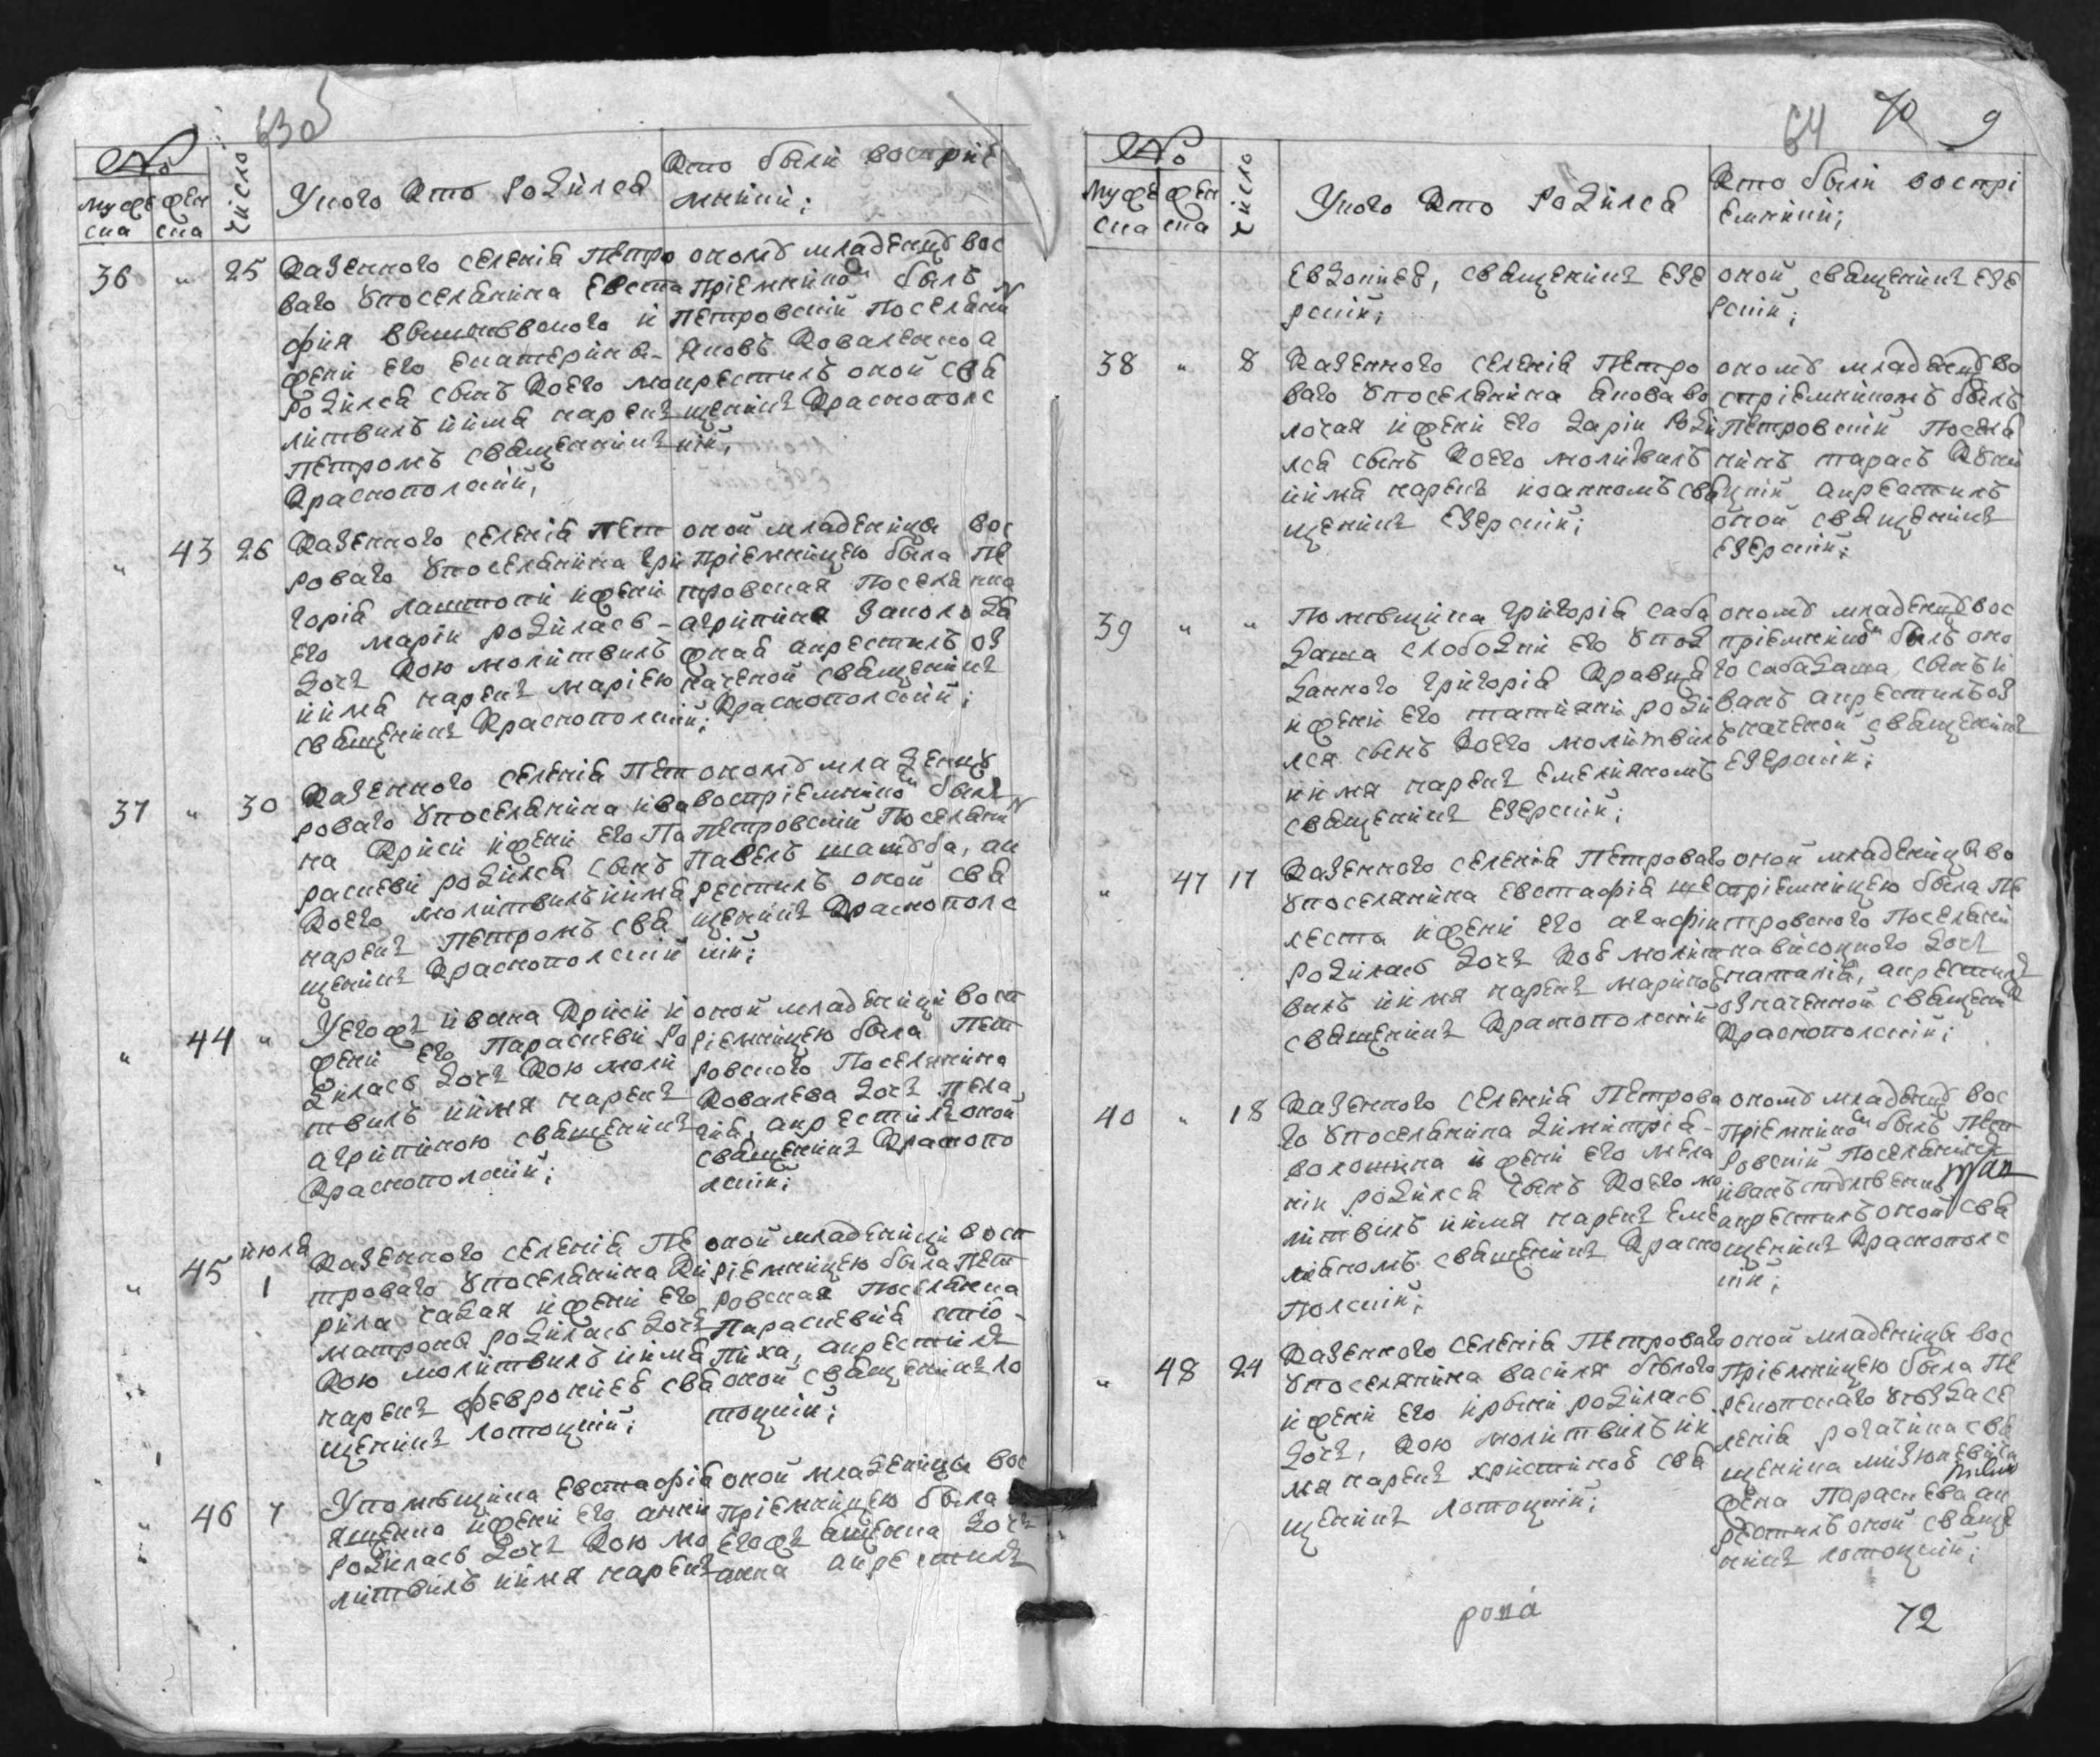 63об
№
муже
ска
жен
ска
число
У кого кто родился
Кто были восприе
мники;
36 " 25
Казенного селения Петро
ваго у поселянина Евста
фия
жени его Екатерини
родился сынъ коего мо
литвилъ и имя нареклъ
Петромъ священникъ
Краснополский;
оному младенцу вос
приемникомъ былъ
Петровский поселянин
Яковъ Коваленко а
крестилъ оной свя
щенникъ Краснополс
кий;
" 43 26
Казенного селения Пет
роваго у поселянина Гри
гория Лаштопи и жени
его Марии родилась
дочь кою молитвилъ
и имя нареклъ Мариею
священникъ Краснополский;
оной младенице вос
приемницею была Пе
тровская поселянка
агрипина
а крестилъ оз
наченой священникъ
Краснополский;
37 " 30
Казенного селения Пет
роваго у поселянина Ива
на Криси и жени его Па
раскеви родился сынъ
коего молитвилъ и имя
нареклъ Петромъ свя
щенникъ Краснополский
оному младенцу
восприемникомъ былъ
Петровский поселянин
Павелъ а к
рестилъ оной свя
щенникъ Краснополс
кий;
" 44 "
У егожъ Ивана Криси и
жени его Параскеви ро
дилась дочь кою моли
твилъ и имя нареклъ
агрипиною священникъ
Краснополский;
оной младеници восп
риемницею была Пет
ровского поселянина
Ковалева дочь Пела
гия, а крестилъ оной
священникъ Краснопо
лский;
июля
" 45 1
Казенного селения Пе
троваго у поселянина Ки
рила Садая и жени его
Матрони родилась дочь
кою молитвилъ и имя
нареклъ Феврониею свя
щенникъ Лотоцкий;
оной младеници восп
риемницею была Пет
ровская поселянка
Параскевия
а крестилъ
оной священникъ Ло
тоцкий;
46 7
У помещика Евстафия
Ященка и жени его Анни
родилась дочь кою мо
литвилъ и имя нареклъ
оной младенице вос
приемницею была
егожъ Ященка дочь
анна а крестилъ
64 70 9
№
муже
ска
жен
ска
число
У кого кто родился
Кто были воспри
емники;
Евдокиею, священникъ Езе
рский;
оной священникъ Езе
рский;
38 " 8
Казенного селения Петро
ваго у поселянина Якова Во
лочая и жени его Дарии роди
лся сынъ коего молитвилъ
и имя нареклъ Иоанномъ свя
щенникъ Езерский;
оному младенцу во
сприемникомъ былъ
Петровский поселя
нинъ Тарасъ
а крестилъ
оной священникъ
Езерский;
39 " "
Помещика Григория Саба
даша слободки его у под
данного Григория Кравца
и жени его Татияни роди
лся сынъ коего молитвилъ
и имя нареклъ Емелияномъ
священникъ Езерский;
оному младенцу вос
приемникомъ былъ оно
го Сабадаша сынъ И
ванъ а крестилъ оз
наченой священникъ
Езерский;
" 47 17
Казенного селения Петроваго
у поселянина Евстафия Ше
леста и жени его Агафии
родилась дочь кое молит
вилъ и имя нареклъ Мариною
священникъ Краснополский
оной младенице во
сприемницею была Пе
тровского поселяни
на Високого дочь
Наталия, а крестилъ
означенной священникъ
Краснополский;
40 " 18
Казенного селения Петрова
го у поселянина Димитрия
Волошина и жени его Мела
нии родился сынъ коего мо
литвилъ и имя нареклъ Еме
лияномъ священникъ Красно
полский;
оному младенцу вос
приемникомъ былъ Пет
ровский поселянинъ
Иванъ
а крестилъ оной свя
щенникъ Краснополс
кий;
" 48 24
Казенного селения Петроваго
у поселянина Василя Белого
и жени его Ирини родилась
дочь, кою молитвилъ и и
мя нареклъ Христиною свя
щенникъ Лотоцкий;
оной младенице вос
приемницею была Пе
рекопскаго уезда се
ления Рогачика свя
щеника
жена Параскева а к
рестилъ оной свяще
никъ Лотоцкий;
72